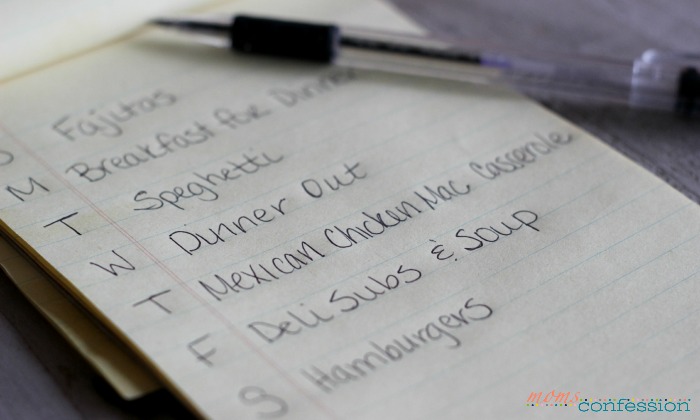 S Fajitas
M Breakfast for Dinner
T Speghetti
W Dinner Out
T Mexican Chicken Mac Casserole
F Deli Subs & Soup
S Hamburgers
moms confession